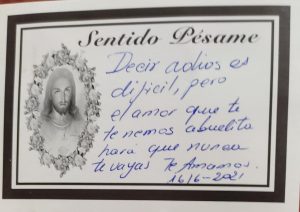 Sentido Pésame
Decir adios es
dificil, pero
el amor que te
tenemos abuelita
hará que nunca
te vayas Te Amamos.
16/6-2021